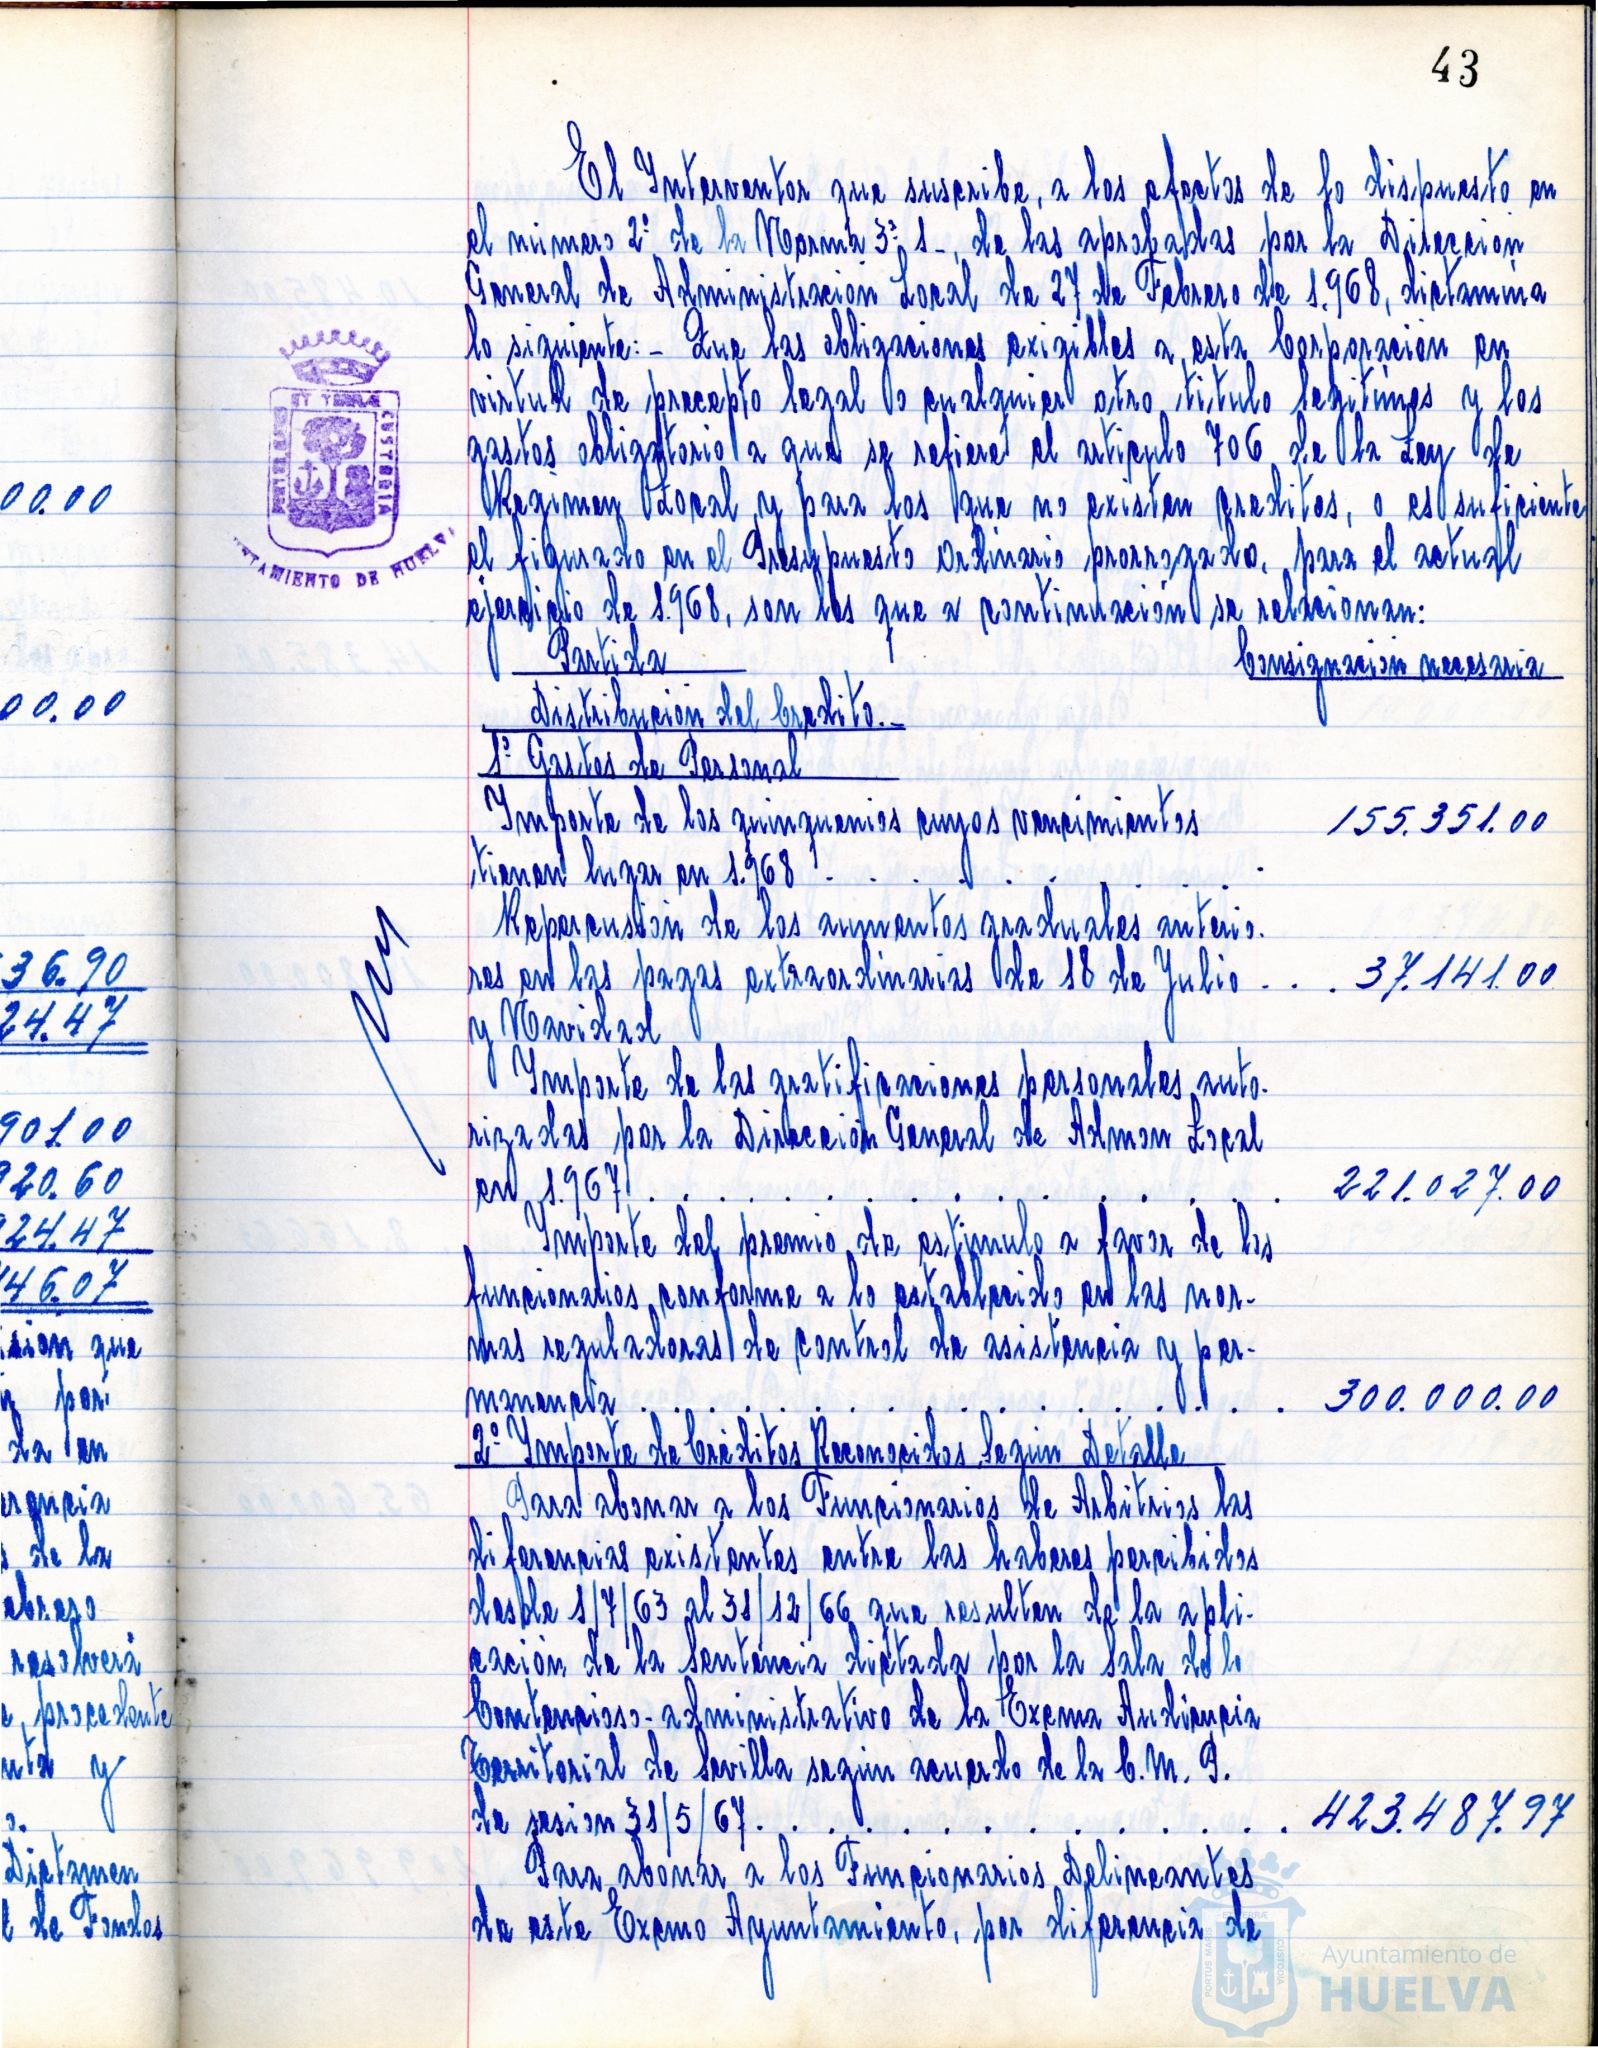 43
El Interventor que suscribe, a los efectos de lo dispuesto en
el número 2º de la Norma 3ª 1-, de las aprobadas por la Dirección
General de Administración Local de 27 de Febrero de 1.968, dictamina
lo siguiente:- Que las obligaciones exigibles a esta Corporación en
virtud de precepto legal o cualquier otro titulo legitimos y los
gastos obligatorio a que se refiere el articulo 706 de la Ley de
Regimen Local y para los que no existen creditos, o es suficiente
el figurado en el Presupuesto Ordinario prorrogado, para el actual
ejercicio de 1.968, son los que a continuación se relacionan:
Partida Consignación necesaria
Distribución del Credito.-
1º Gastos de Personal
Importe de los quinquenios cuyos vencimientos 155.351.00
tienen lugar en 1.968 . . . . . . . . .
Repercusión de los aumentos graduales anterio-
res en las pagas extraordinarias de 18 de Julio . . . 37.141.00
y Navidad
Importe de las gratificaciones personales auto-
rizadas por la Dirección General de Admon Local
en 1.967 . . . . . . . . . . . . . . . . 221.027.00
Importe del premio de estimulo a favor de los
funcionarios conforme a lo establecido en las nor-
mas reguladoras de control de asistencia y per-
manencia . . . . . . . . . . . . . . . . 300.000.00
2º Importe de Créditos Reconocidos Según Detalle
Para abonar a los Funcionarios de Arbitrios las
diferencias existentes entre las haberes percibidos
desde 1/7/63 al 31/12/66 que resulten de la apli-
cación de la Sentencia dictada por la Sala de lo
Contencioso-administrativo de la Excma Audiencia
Territorial de Sevilla según acuerdo de la C. M. P.
de sesion 31/5/67. . . . . . . . . . . . . . 423.487.97
Para abonar a los Funcionarios Delineantes
de este Excmo Ayuntamiento, por diferencia de
ET TERRÆ
CUSTODIA
PORTUS MARIS
TAMIENTO DE HUELVA
00.00
00.00
36.90
24.47
901.00
920.60
924.47
46.07
que
por
da en
de la
resolverá
procedente
y
Dictamen
de Fondos
ET TERRÆ
PORTUS MARIS
CUSTODIA
Ayuntamiento de
HUELVA